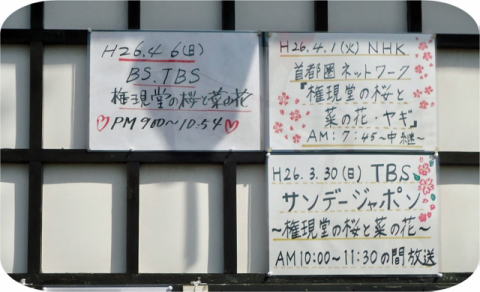 H26.4.6(日)
BS.TBS
権現堂の桜と菜の花
♡PM9:00~10:54♡
H26.4.1(火)NHK
首都圏ネットワーク
『権現堂の桜と
菜の花・ヤギ』
AM:7:45~中継~
H26.3.30(日)TBS
サンデージャポン
~権現堂の桜と菜の花~
AM10:00~11:30の間放送